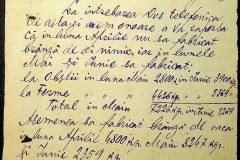 La intrebarea Dvs telefonica
de astazi am onoare a Vă raporta
că in luna Aprilie nu sa fabricat
brânză de nimic, iar in lunele
Mai și Iunie sa fabricat:
la Obștii in luna Mai 2800, in Iunie
la Ferme " " " 4426 kg.
Total in Main 7226 kg, in Iunie
Asemenea sa fabricat brânză de vaca
luna Aprilie 6800 kg. Main 8267 kg.
și Iunie 2354 kg.